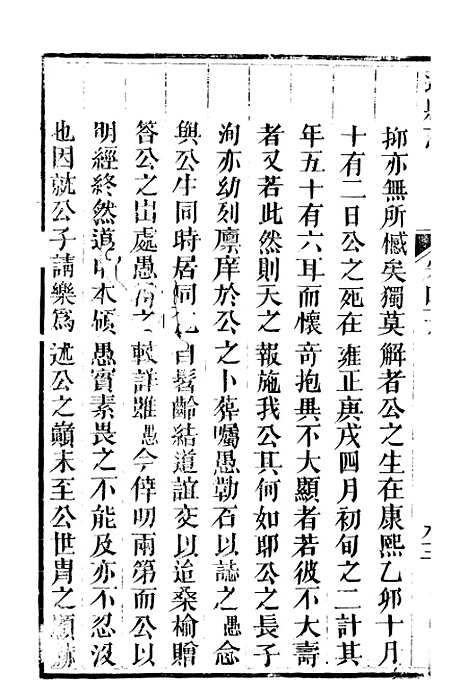 抑亦無所憾矣獨莫解者公之生在康熙乙卯十月
十有二日公之死在雍正庚戌四月初旬之二計其
年五十有六耳而懷奇抱異不大顯者若彼不大壽
者又若此然則天之報施我公其何如耶公之長子
洵亦幼列廪庠於公之卜葬囑愚勒石以誌之愚念
與公生同時居同 自髫齡結道誼交以迨桑榆贈
答公之出處愚 之較詳雖愚今倖叨兩第而公以
明經終然道 本碩愚實素畏之不能及亦不忍沒
也因就公子請樂爲述公之顛末至公世胄之顯